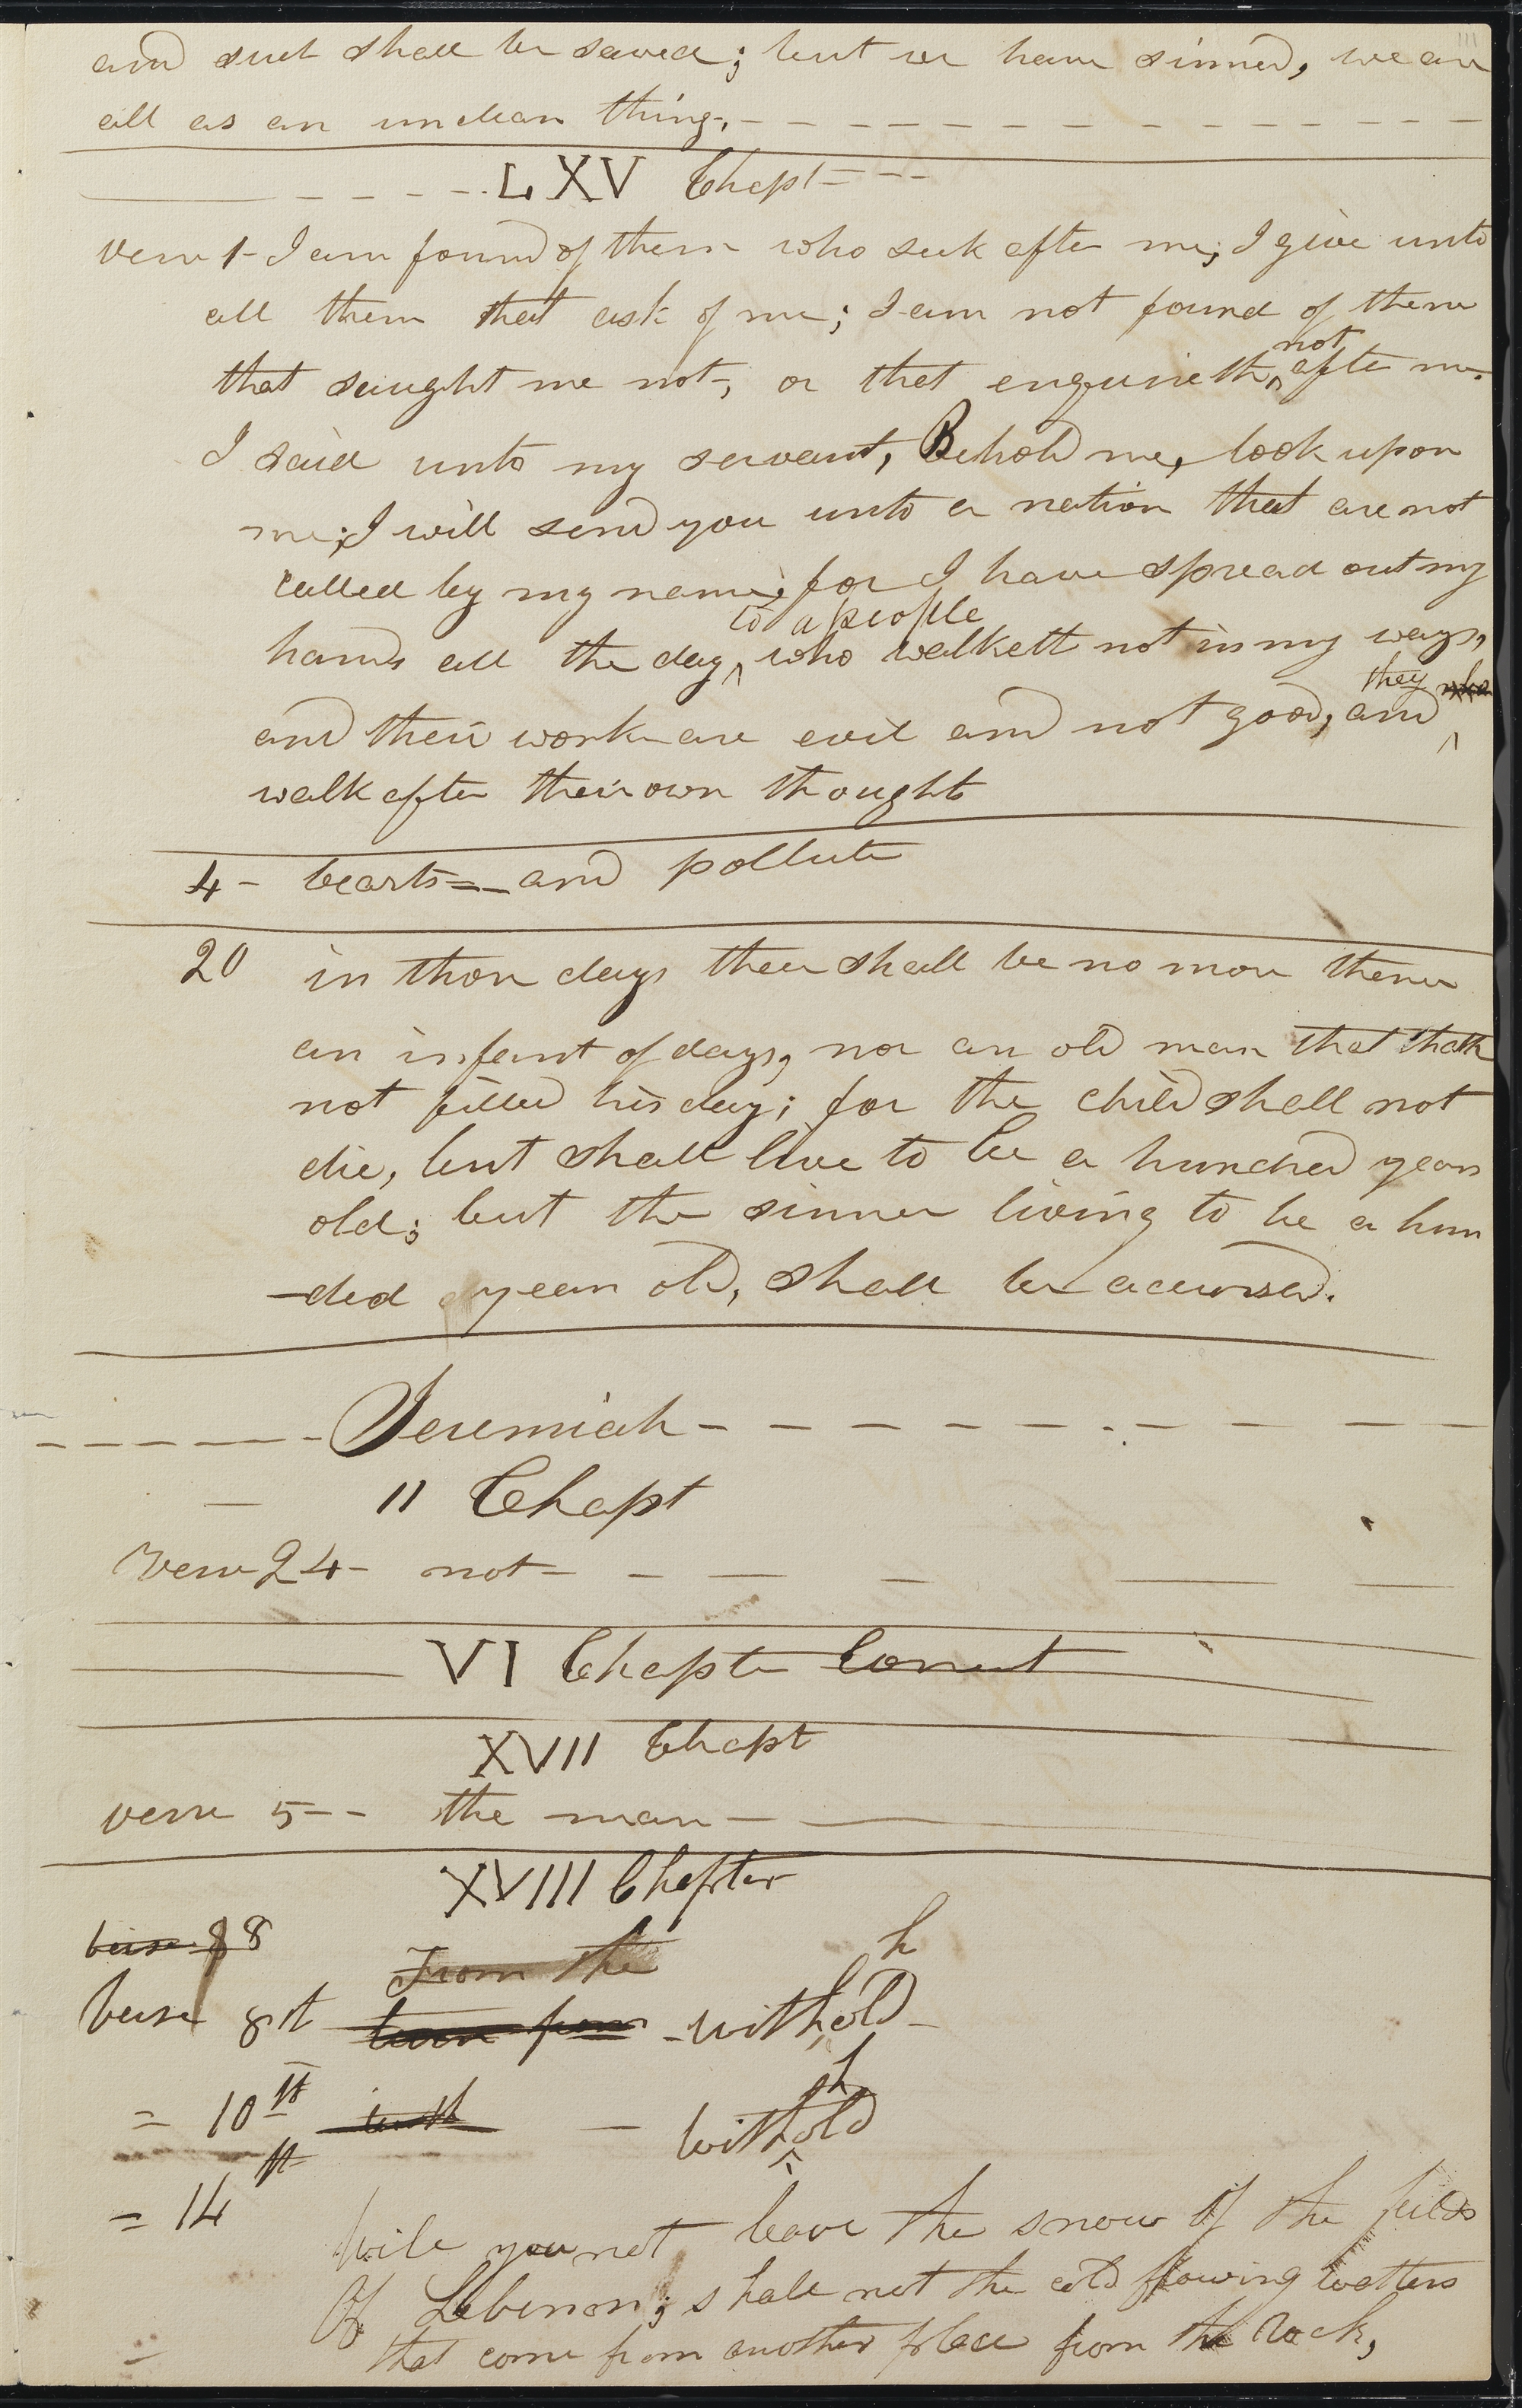 111
and such shall be saved; but we have sinned, we are
all as an unclean thing, - - - - - - - - - - - - -
- - - - LXV Chapt - - -
verse 1 - I am found of them who seek after me, I give unto
all them that ask of me; I am not found of them
that saught me not, or that enquireth ^not after me.
I said unto my servant, Behold me, look upon
me; I will send you unto a nation that are not
called by my name, for I have spread out my
hands all the day ^to a people who walketh not in my ways,
and their works are evil and not good, and ^they
walk after their own thoughts
4 - bearts = - and pollute
20 in those days there shall be no more thence
an infant of days, nor an old man that hath
not filled his day; for the child shall not
die, but shall live to be a hundred years
old; but the sinner living to be a hun
-dred years old, shall be accursed.
- - - - - - Jeremiah - - - - - - - - -
- 11 Chapt
verse 24 - not - - - - - -
VI Chapter Correct
XVII Chapt
verse 5 - - the man - -
XVIII Chapter
verse 8 8
From the
verse 8th - with^hold -
= 10th - with^hold
= 14th
Will you not leave the snow of the feilds
Of Lebenon; shall not the cold flowing watters
that come from another place from the rock,